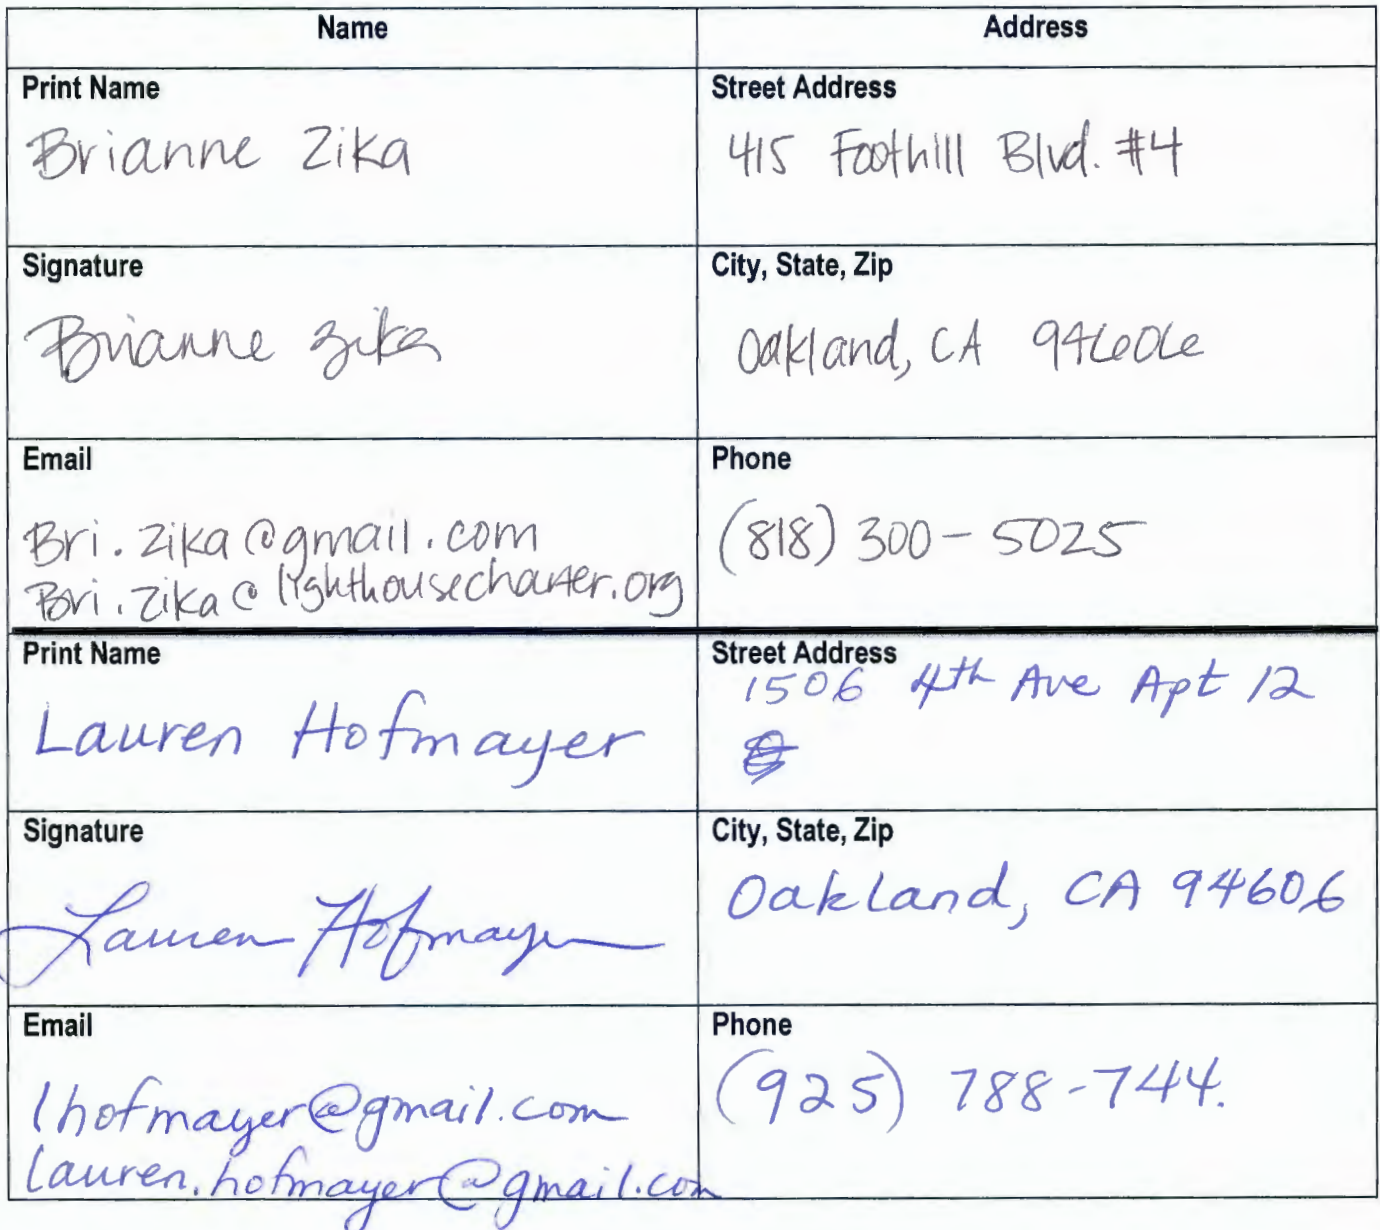 Name
Address
Print Name
Brianne Zika
Street Address
415 Foothill Blvd. #4
Signature
Brianne Zika
City, State, Zip
Oakland, CA 94606
Email
Bri.zika@gmail.com
Bri.zika@lighthousecharter.org
Phone
(818) 300-5025
Print Name
Lauren Hofmayer
Street Address
1506 4th Ave Apt 12
Signature
Lauren Hofmayer
City, State, Zip
Oakland, CA 94606
Email
lhofmayer@gmail.com
lauren.hofmayer@gmail.com
Phone
(925) 788-744.